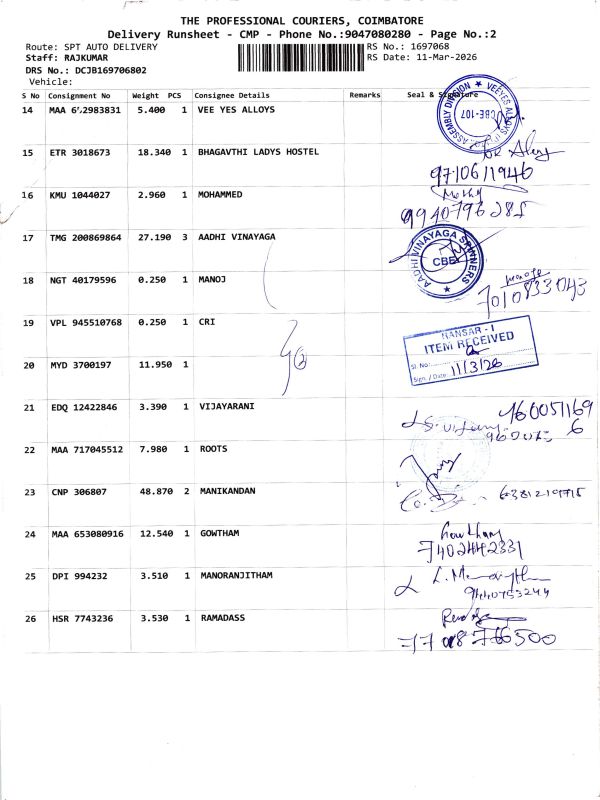 THE PROFESSIONAL COURIERS, COIMBATORE
Delivery Runsheet - CMP - Phone No.:9047080280 - Page No.:2
Route: SPT AUTO DELIVERY
RS No.: 1697068
Staff: RAJKUMAR
RS Date: 11-Mar-2026
DRS No.: DCJB169706802
Vehicle:
S No Consignment No Weight PCS Consignee Details Remarks Seal & Signature
14 MAA 2983831 5.400 1 VEE YES ALLOYS
ASSEMBLY DIVISION ★ VEEYES ALLOYS
CBE-107
15 ETR 3018673 18.340 1 BHAGAVTHI LADYS HOSTEL
9710611946
16 KMU 1044027 2.960 1 MOHAMMED
9940796281
17 TMG 200869864 27.190 3 AADHI VINAYAGA
AADHI VINAYAGA SPINNERS ★
CBE
18 NGT 40179596 0.250 1 MANOJ
manoj
7010833043
19 VPL 945510768 0.250 1 CRI
HANSAR - I
ITEM RECEIVED
Sl. No:
Sign. / Date: 11/3/26
20 MYD 3700197 11.950 1
21 EDQ 12422846 3.390 1 VIJAYARANI
22 MAA 717045512 7.980 1 ROOTS
23 CNP 306807 48.870 2 MANIKANDAN
6381219715
24 MAA 653080916 12.540 1 GOWTHAM
Gowtham
7402442331
25 DPI 994232 3.510 1 MANORANJITHAM
9440753244
26 HSR 7743236 3.530 1 RAMADASS